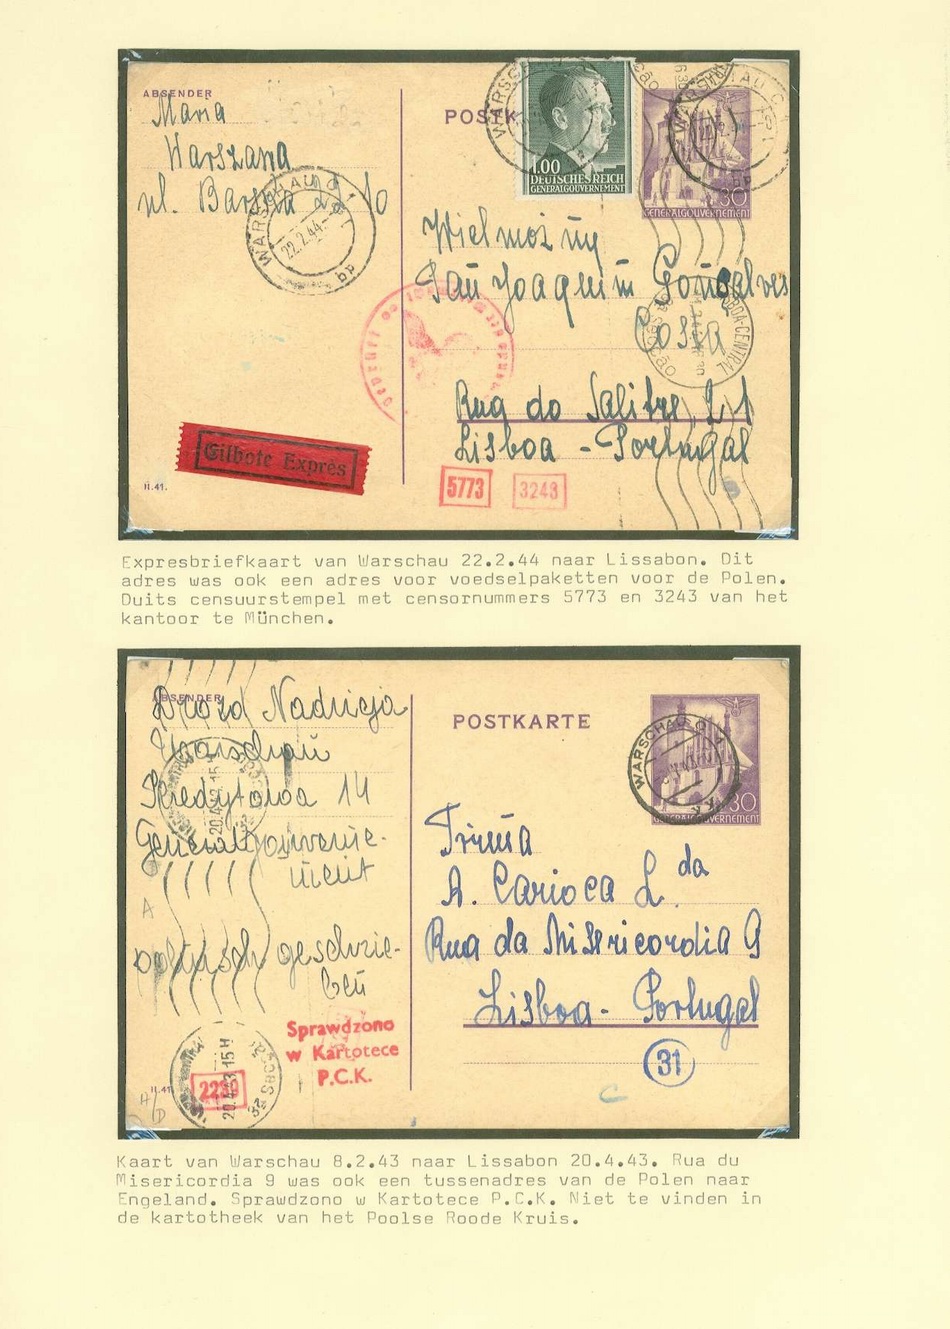 ABSENDER
Maria
Warszawa
ul. Barska 10
WARSCHAU
22.2.44
bp
POSTK
WARSCHAU
1.00
DEUTSCHES REICH
GENERALGOUVERNEMENT
WARSCHAU C
30
GENERALGOUVERNEMENT
Wielmożny
Pan Joaquim Gonçalves
Costa
LISBOA-CENTRAL
Rua do Salitre, 21
Lisboa - Portugal
Eilbote Exprès
5773
3243
II.41.
Expresbriefkaart van Warschau 22.2.44 naar Lissabon. Dit
adres was ook een adres voor voedselpaketten voor de Polen.
Duits censuurstempel met censornummers 5773 en 3243 van het
kantoor te München.
ABSENDER
Drozd Nadzieja
Warschau
Kredytowa 14
Generalgouverne-
ment
A
polnisch geschrie-
ben
POSTKARTE
WARSCHAU
30
GENERALGOUVERNEMENT
20.4.43 15 H
Firma
A. Carioca L.da
Rua da Misericordia 9
Lisboa - Portugal
31
Sprawdzono
w Kartotece
P.C.K.
II.41
20.4.43 15 H
Kaart van Warschau 8.2.43 naar Lissabon 20.4.43. Rua du
Misericordia 9 was ook een tussenadres van de Polen naar
Engeland. Sprawdzono w Kartotece P.C.K. Niet te vinden in
de kartotheek van het Poolse Roode Kruis.